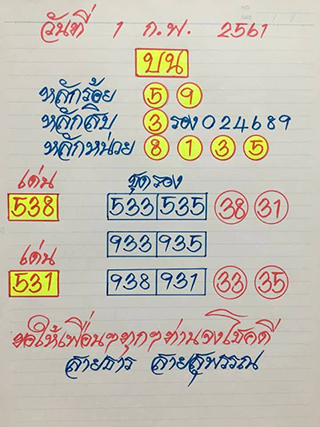 วันที่ 1 ก.พ. 2561
บน
หลักร้อย 5 9
หลักสิบ 3 รอง 024689
หลักหน่วย 8 1 3 5
เด่น ชุดรอง
538 533 535 38 31
933 935
เด่น
531 938 931 33 35
ขอให้เพื่อนๆทุกๆท่านจงโชคดี
สายธาร สายสุพรรณ